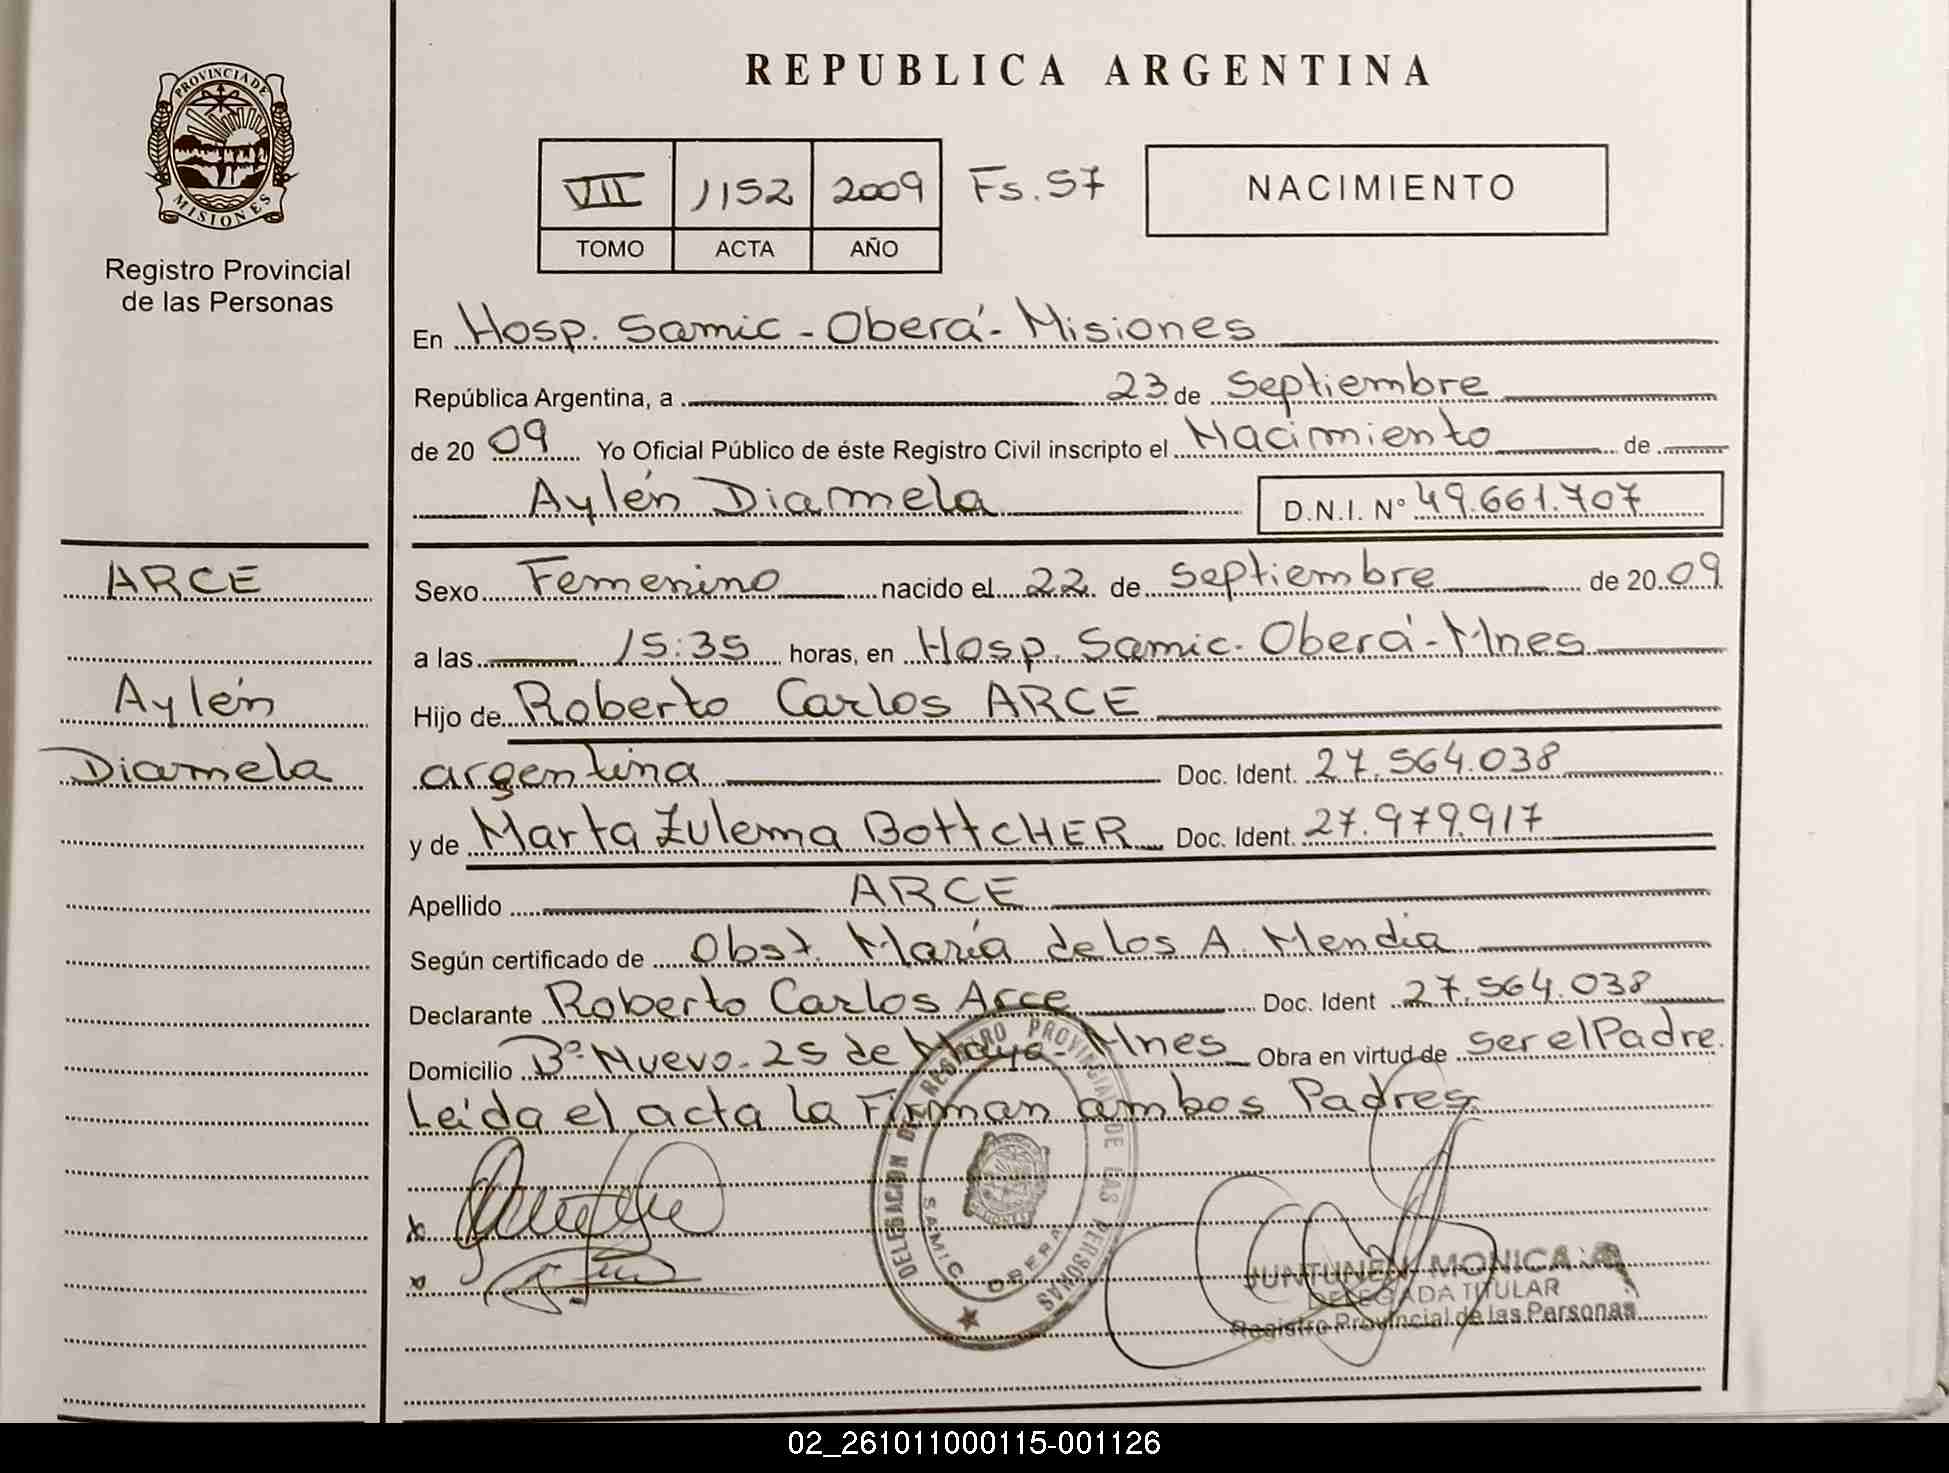 PROVINCIA DE
MISIONES
Registro Provincial
de las Personas
REPUBLICA ARGENTINA
VII 1152 2009 Fs. 57
TOMO ACTA AÑO
NACIMIENTO
En Hosp. Samic - Oberá - Misiones
República Argentina, a 23 de Septiembre
de 2009 Yo Oficial Público de éste Registro Civil inscripto el Nacimiento de
Aylén Diamela D.N.I. N° 49.661.707
ARCE
Aylén
Diamela
Sexo Femenino nacido el 22 de Septiembre de 2009
a las 15:35 horas, en Hosp. Samic. Oberá - Mnes
Hijo de Roberto Carlos ARCE
argentina Doc. Ident. 27.564.038
y de Marta Zulema BOTTCHER Doc. Ident. 27.979.917
Apellido ARCE
Según certificado de Obst. María de los A. Mendia
Declarante Roberto Carlos Arce Doc. Ident 27.564.038
Domicilio B° Nuevo - 25 de Mayo - Mnes Obra en virtud de ser el Padre.
Leída el acta la Firman ambos Padres.
DELEGACION DE REGISTRO PROVINCIAL DE LAS PERSONAS
SAMIC OBERA
MISIONES
JUNTUNEN MONICA
DELEGADA TITULAR
Registro Provincial de las Personas
02_261011000115-001126